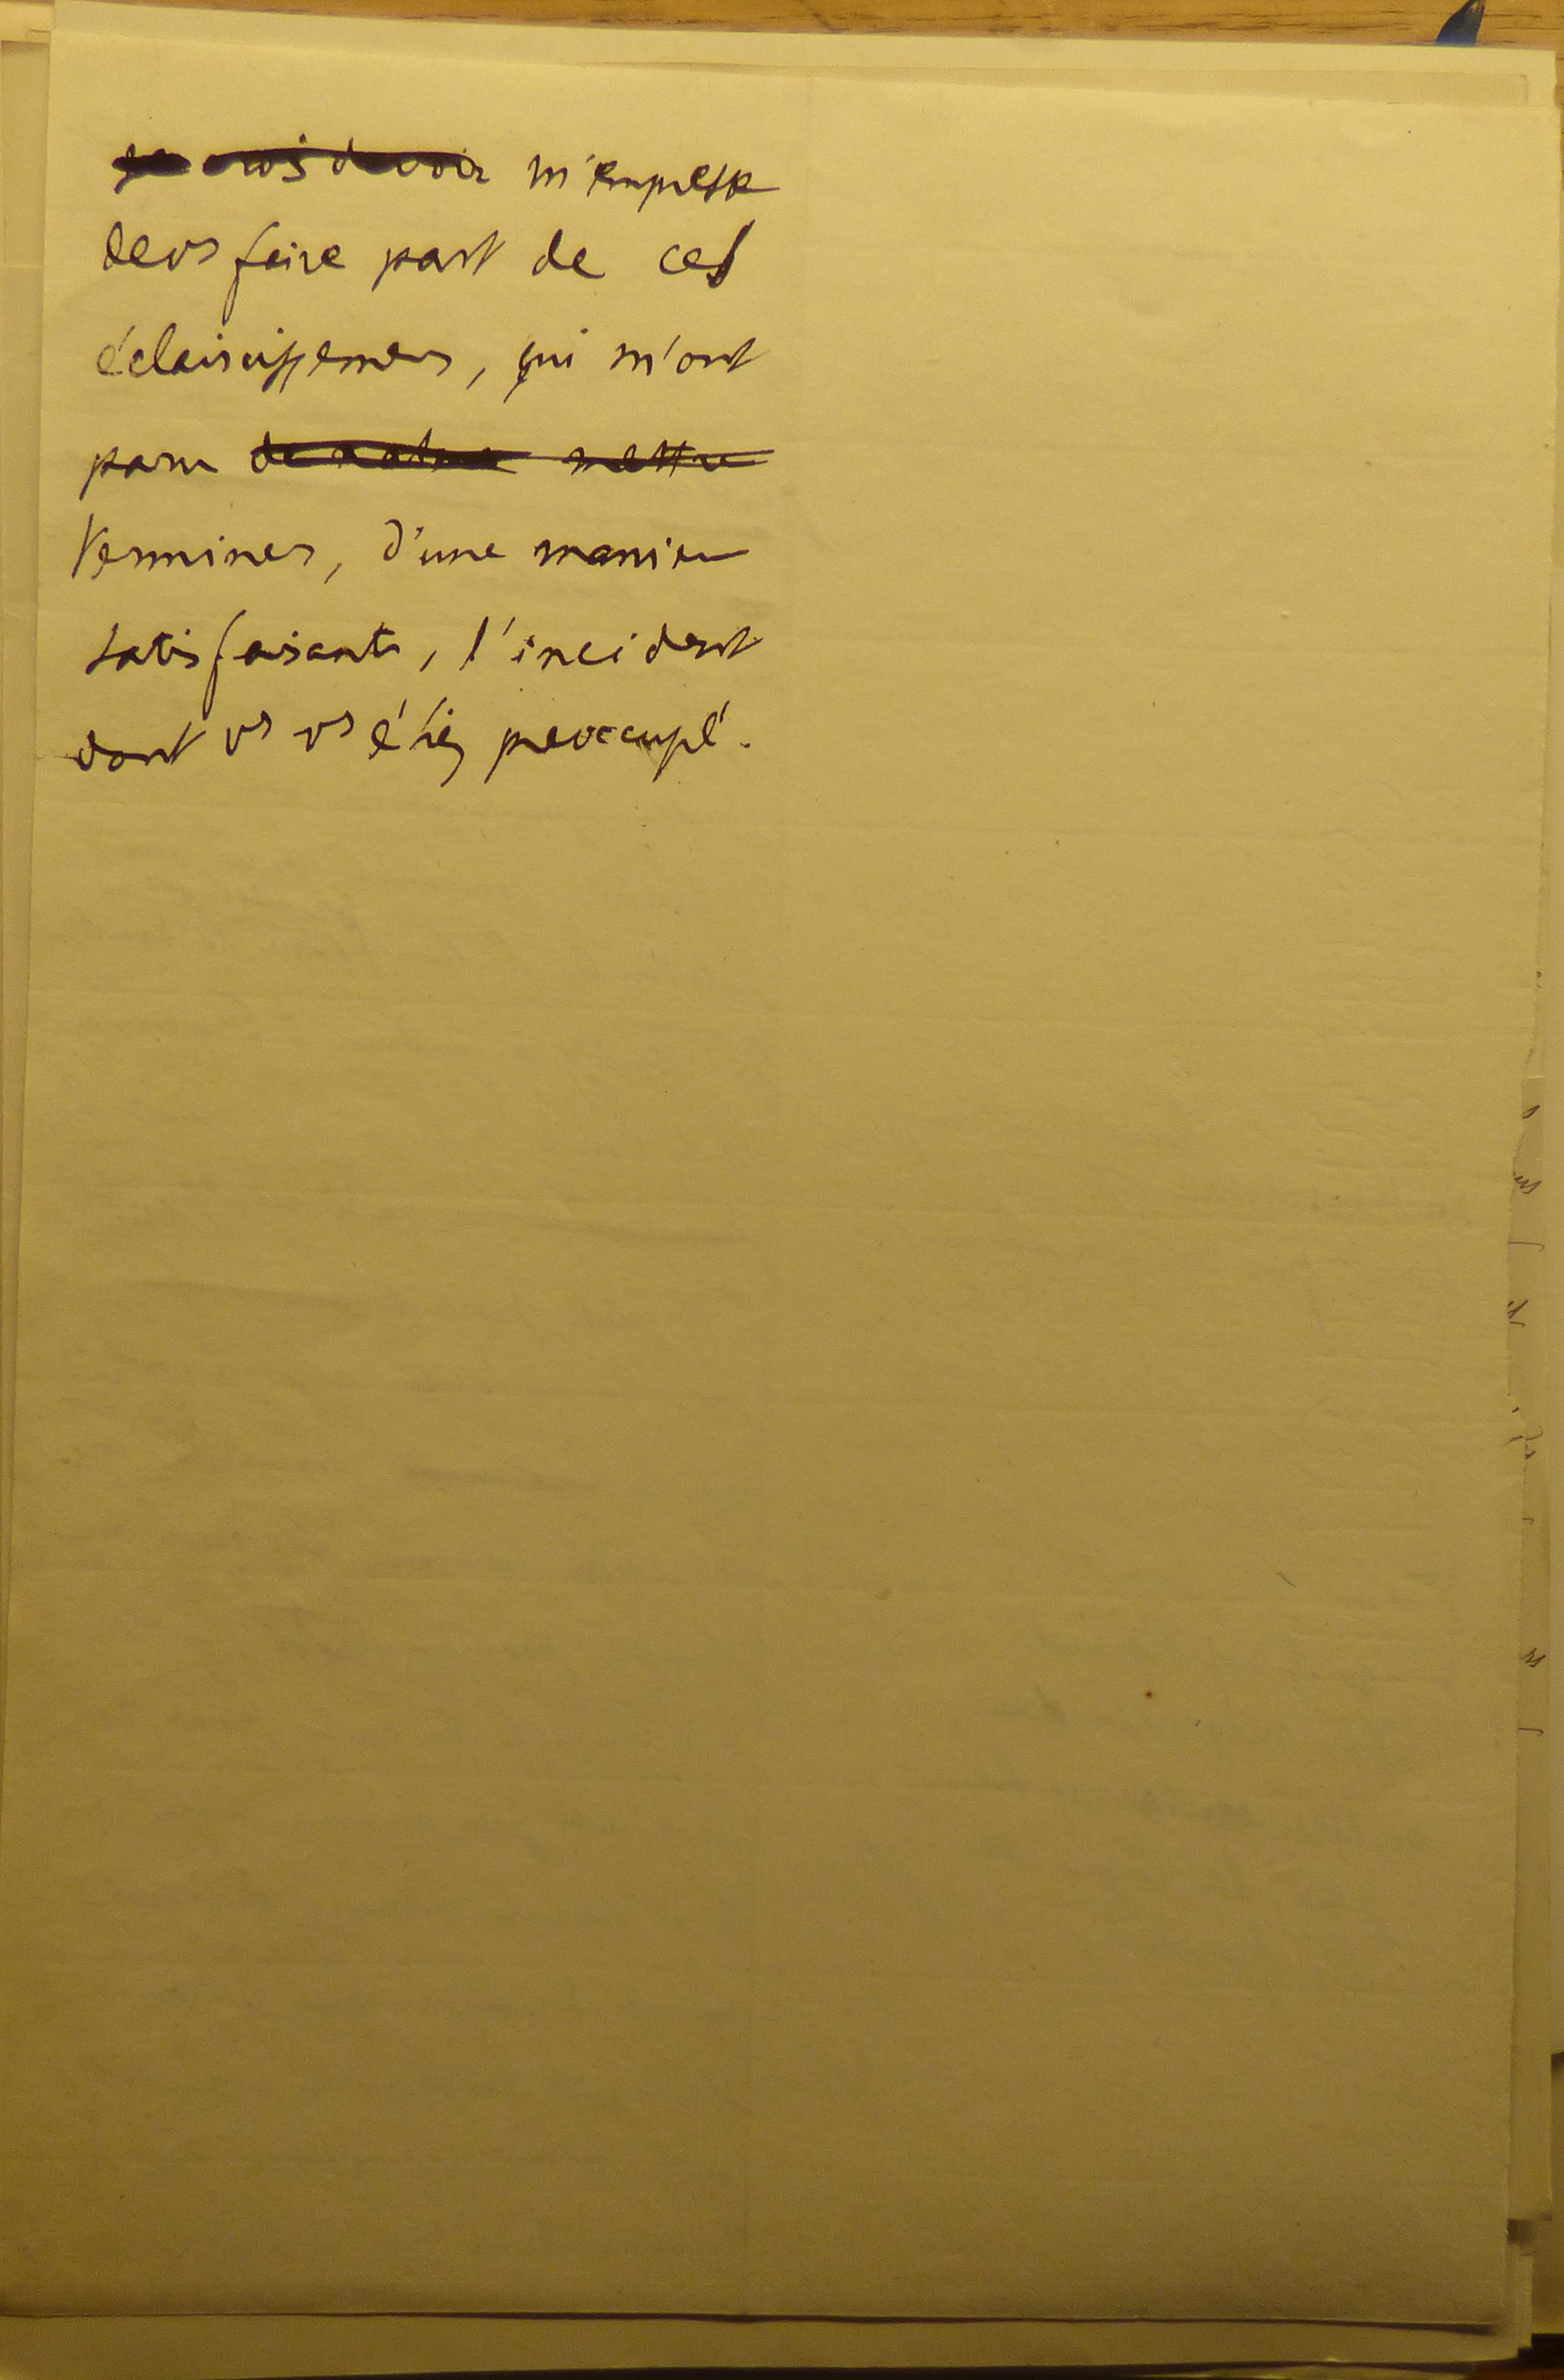 je crois devoir m'empresse
de vs faire part de ces
éclaircissemens, qui m'ont
paru de nature mettre
terminer, d'une manière
satisfaisante, l'incident
dont vs vs étiez préoccupé.